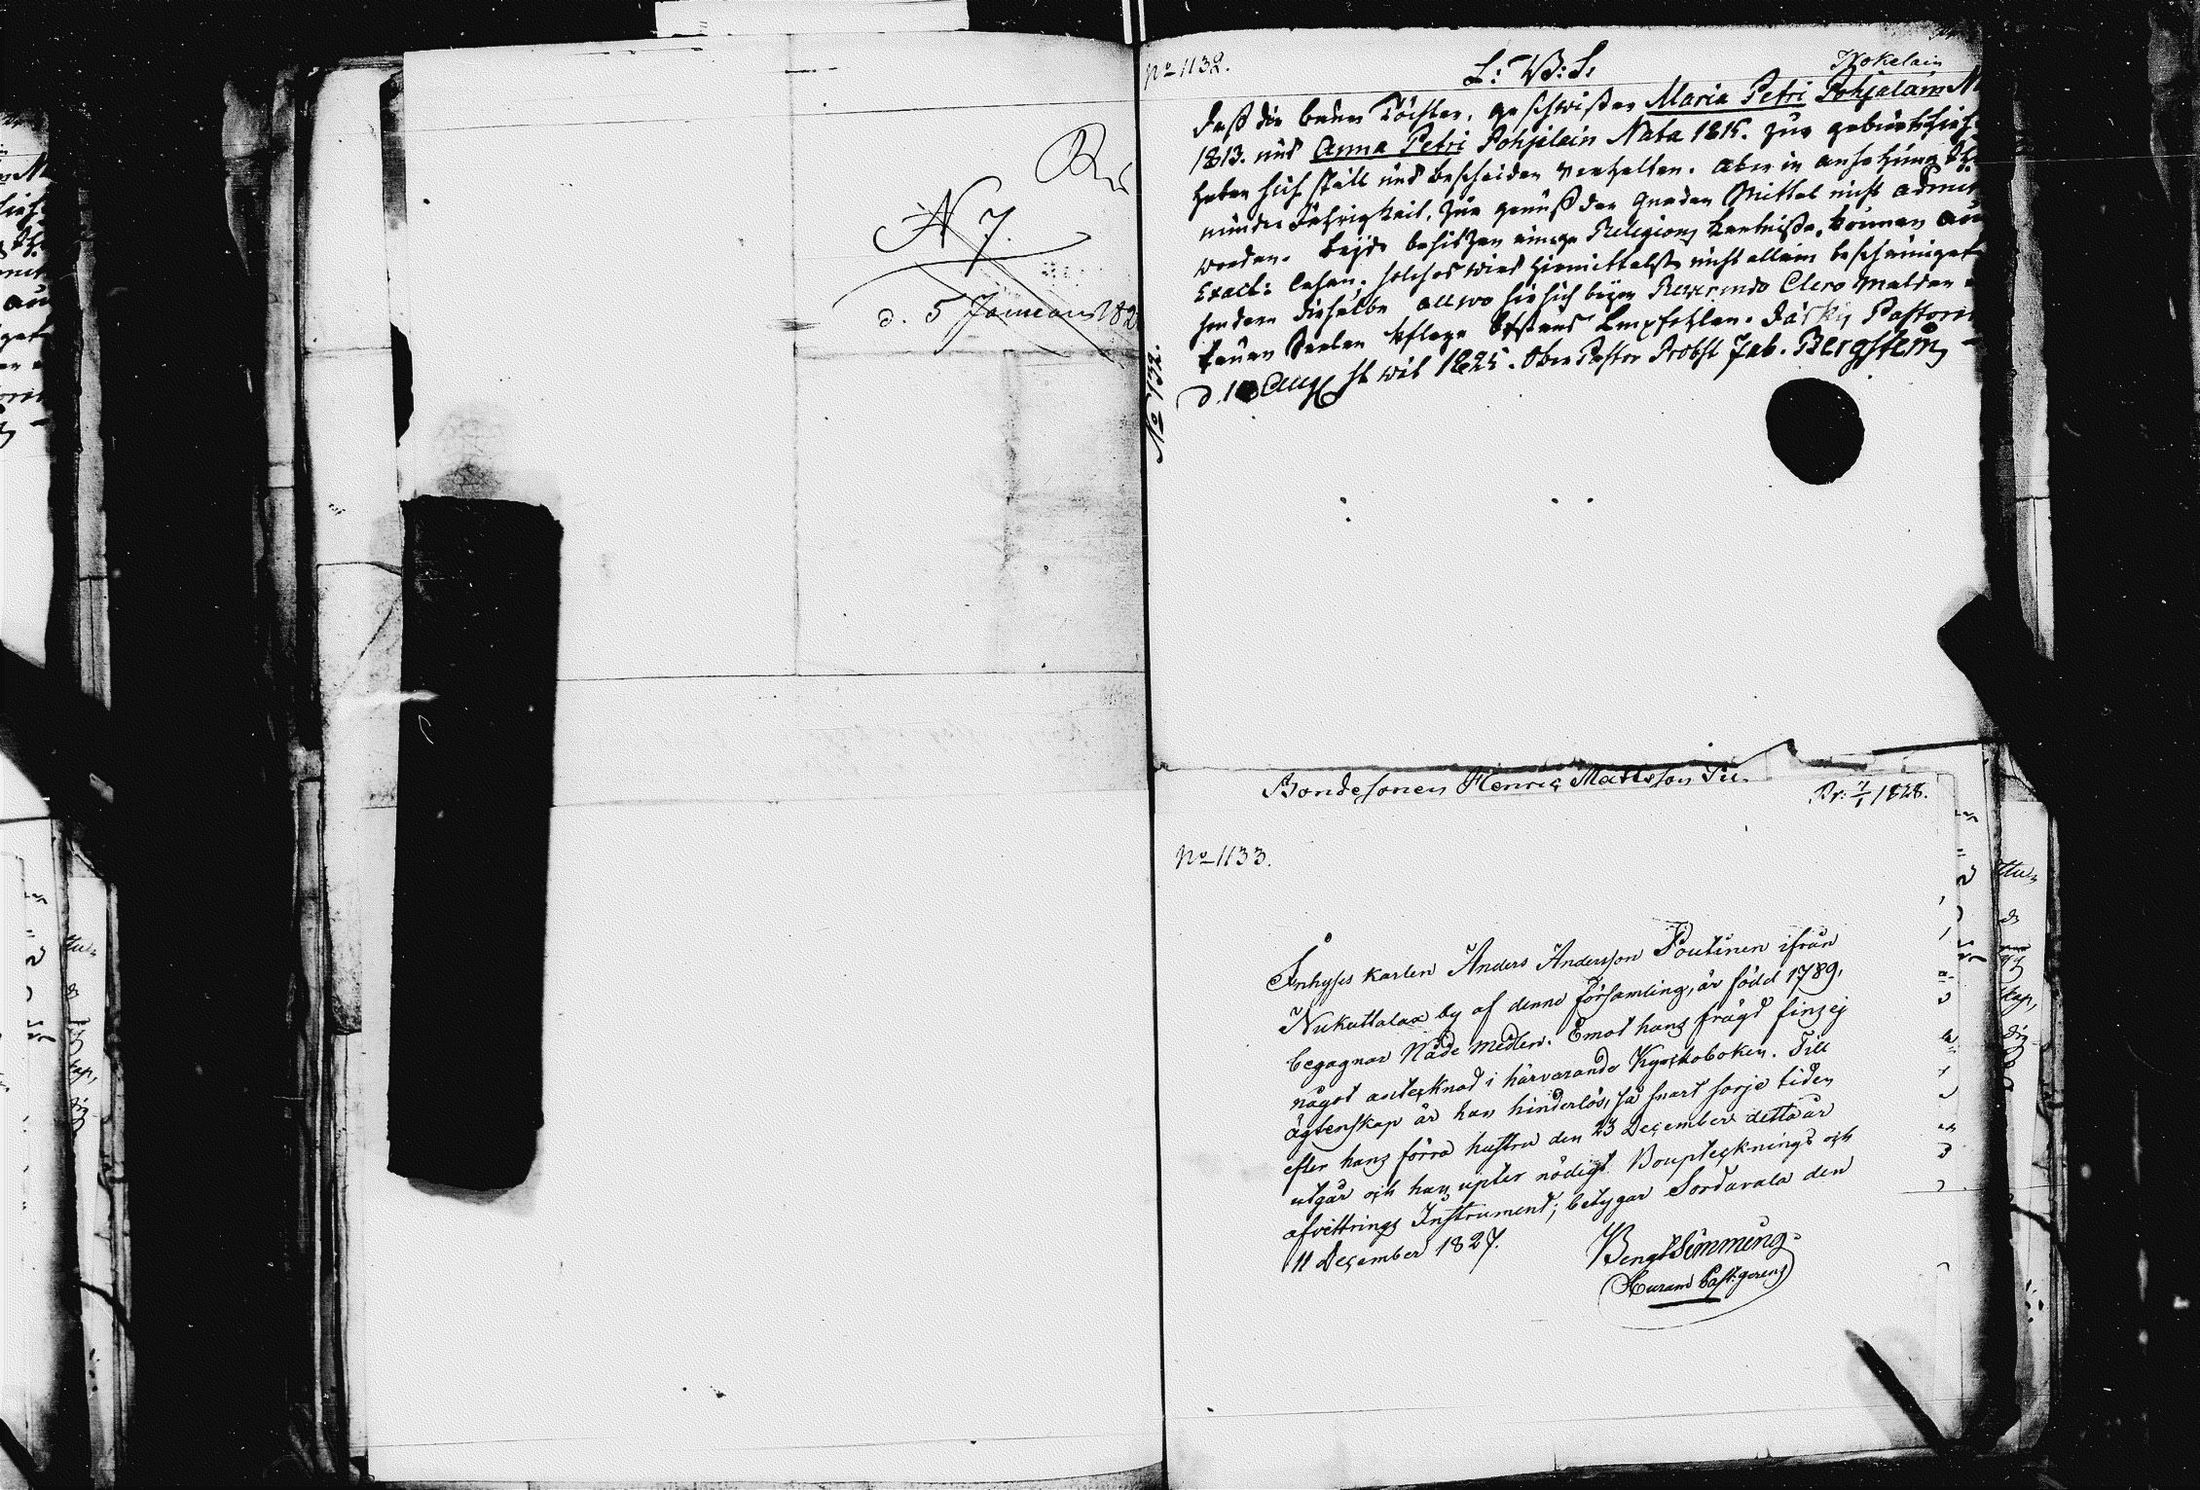 N 7.
d. 5 Januari 182
No 1132.
L: B: S:
Daß die bauer Töchter, geschwister Maria Petri Pohjalain N
1813. und Anna Petri Pohjalain Nata 1815. zur
haben sich still und bescheiden verhalten. aber in ansehung
minder Jährigkeit, zum genuß der Gnaden Mittel nicht admit
worden. Beyde besitzen einige Religions kentniße, können
Exact: lesen, solches wird hiermittelst nicht allein bescheiniget
sondern dieselbe allwo sie sich beym Reverendo Clero melden
treuen Seelen pflege bestens Empfohlen. Jäskis Pastorat
d. Aug 1825. Ober Pastor Probst Jab. Bergstein
No 132.
Bondesonen Henric Mattsson
Pr: 7/1 1828.
No 1133.
Inhyses karlen Anders Andersson Poutinen ifrån
Nukuttalax by af denne församling, är född 1789,
begagnar Nåde medlen. Emot hans frägd fins ej
något antecknad i härvarande Kyrkoboken. Till
ägtenskap är han hinderlös, så snart sorje tiden
efter hans förra hustru den 23 December detta år
utgår och han upter nödigt Bouptecknings och
afvittrings Instrument; betygar Sordavala den
11 December 1827.
Bengt Simming
Past: gerens